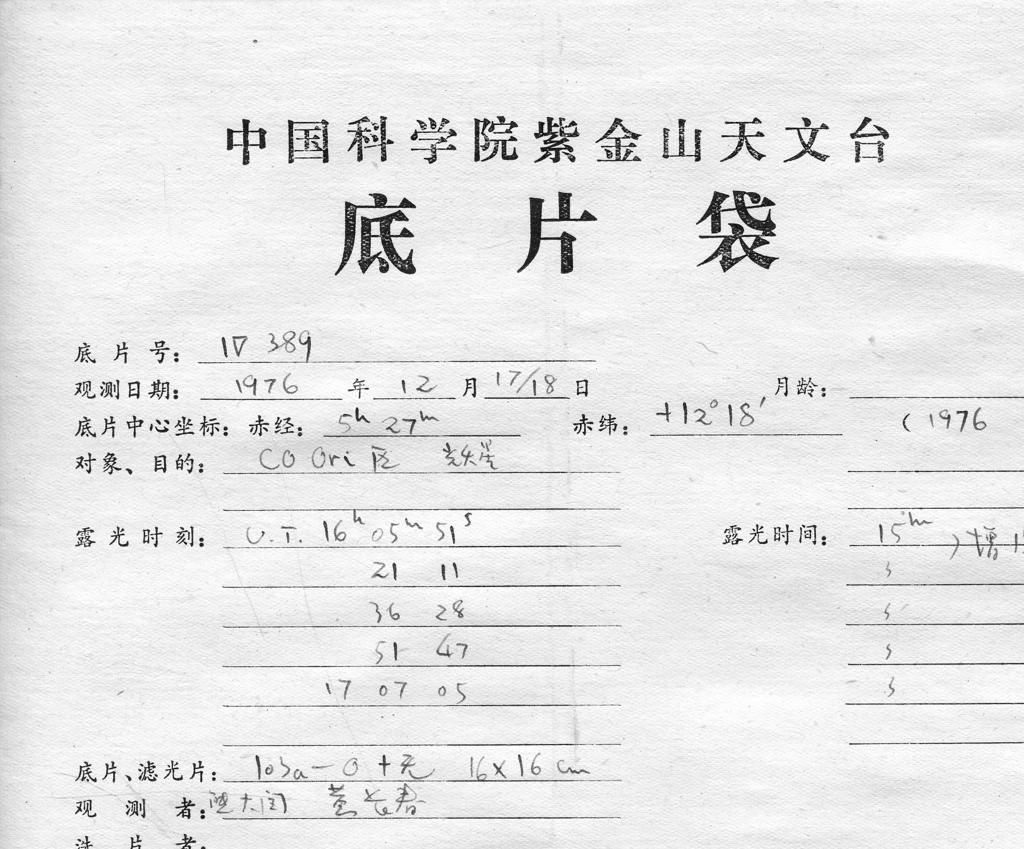 中国科学院紫金山天文台
底片袋
底片号: 1▽ 389
观测日期: 1976 年 12 月 17/18 日 月龄:
底片中心坐标: 赤经: 5h 27m 赤纬: +12°18′ (1976
对象、目的: CO Ori 区
露光时刻: U.T. 16h 05m 51s 露光时间: 15m
21 11
36 28
51 47
17 07 05
底片、滤光片: 103a-O+无 16×16 cm
观测者: 黄长春
洗片者: